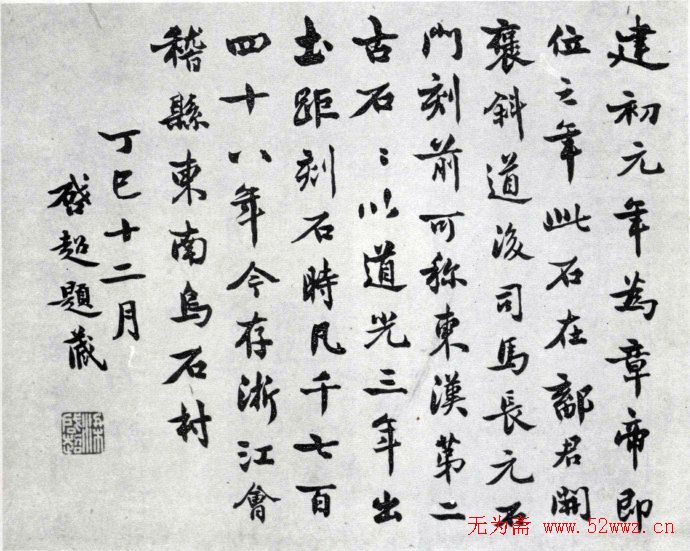 建初元年為章帝即
位之年此石在鄐君開
襃斜道後司馬長元石
門刻前可称東漢第二
古石〻以道光三年出
土距刻石時凡千七百
四十八年今存浙江會
稽縣東南烏石村
丁巳十二月
啓超題藏
无为斋 www.52wwz.cn